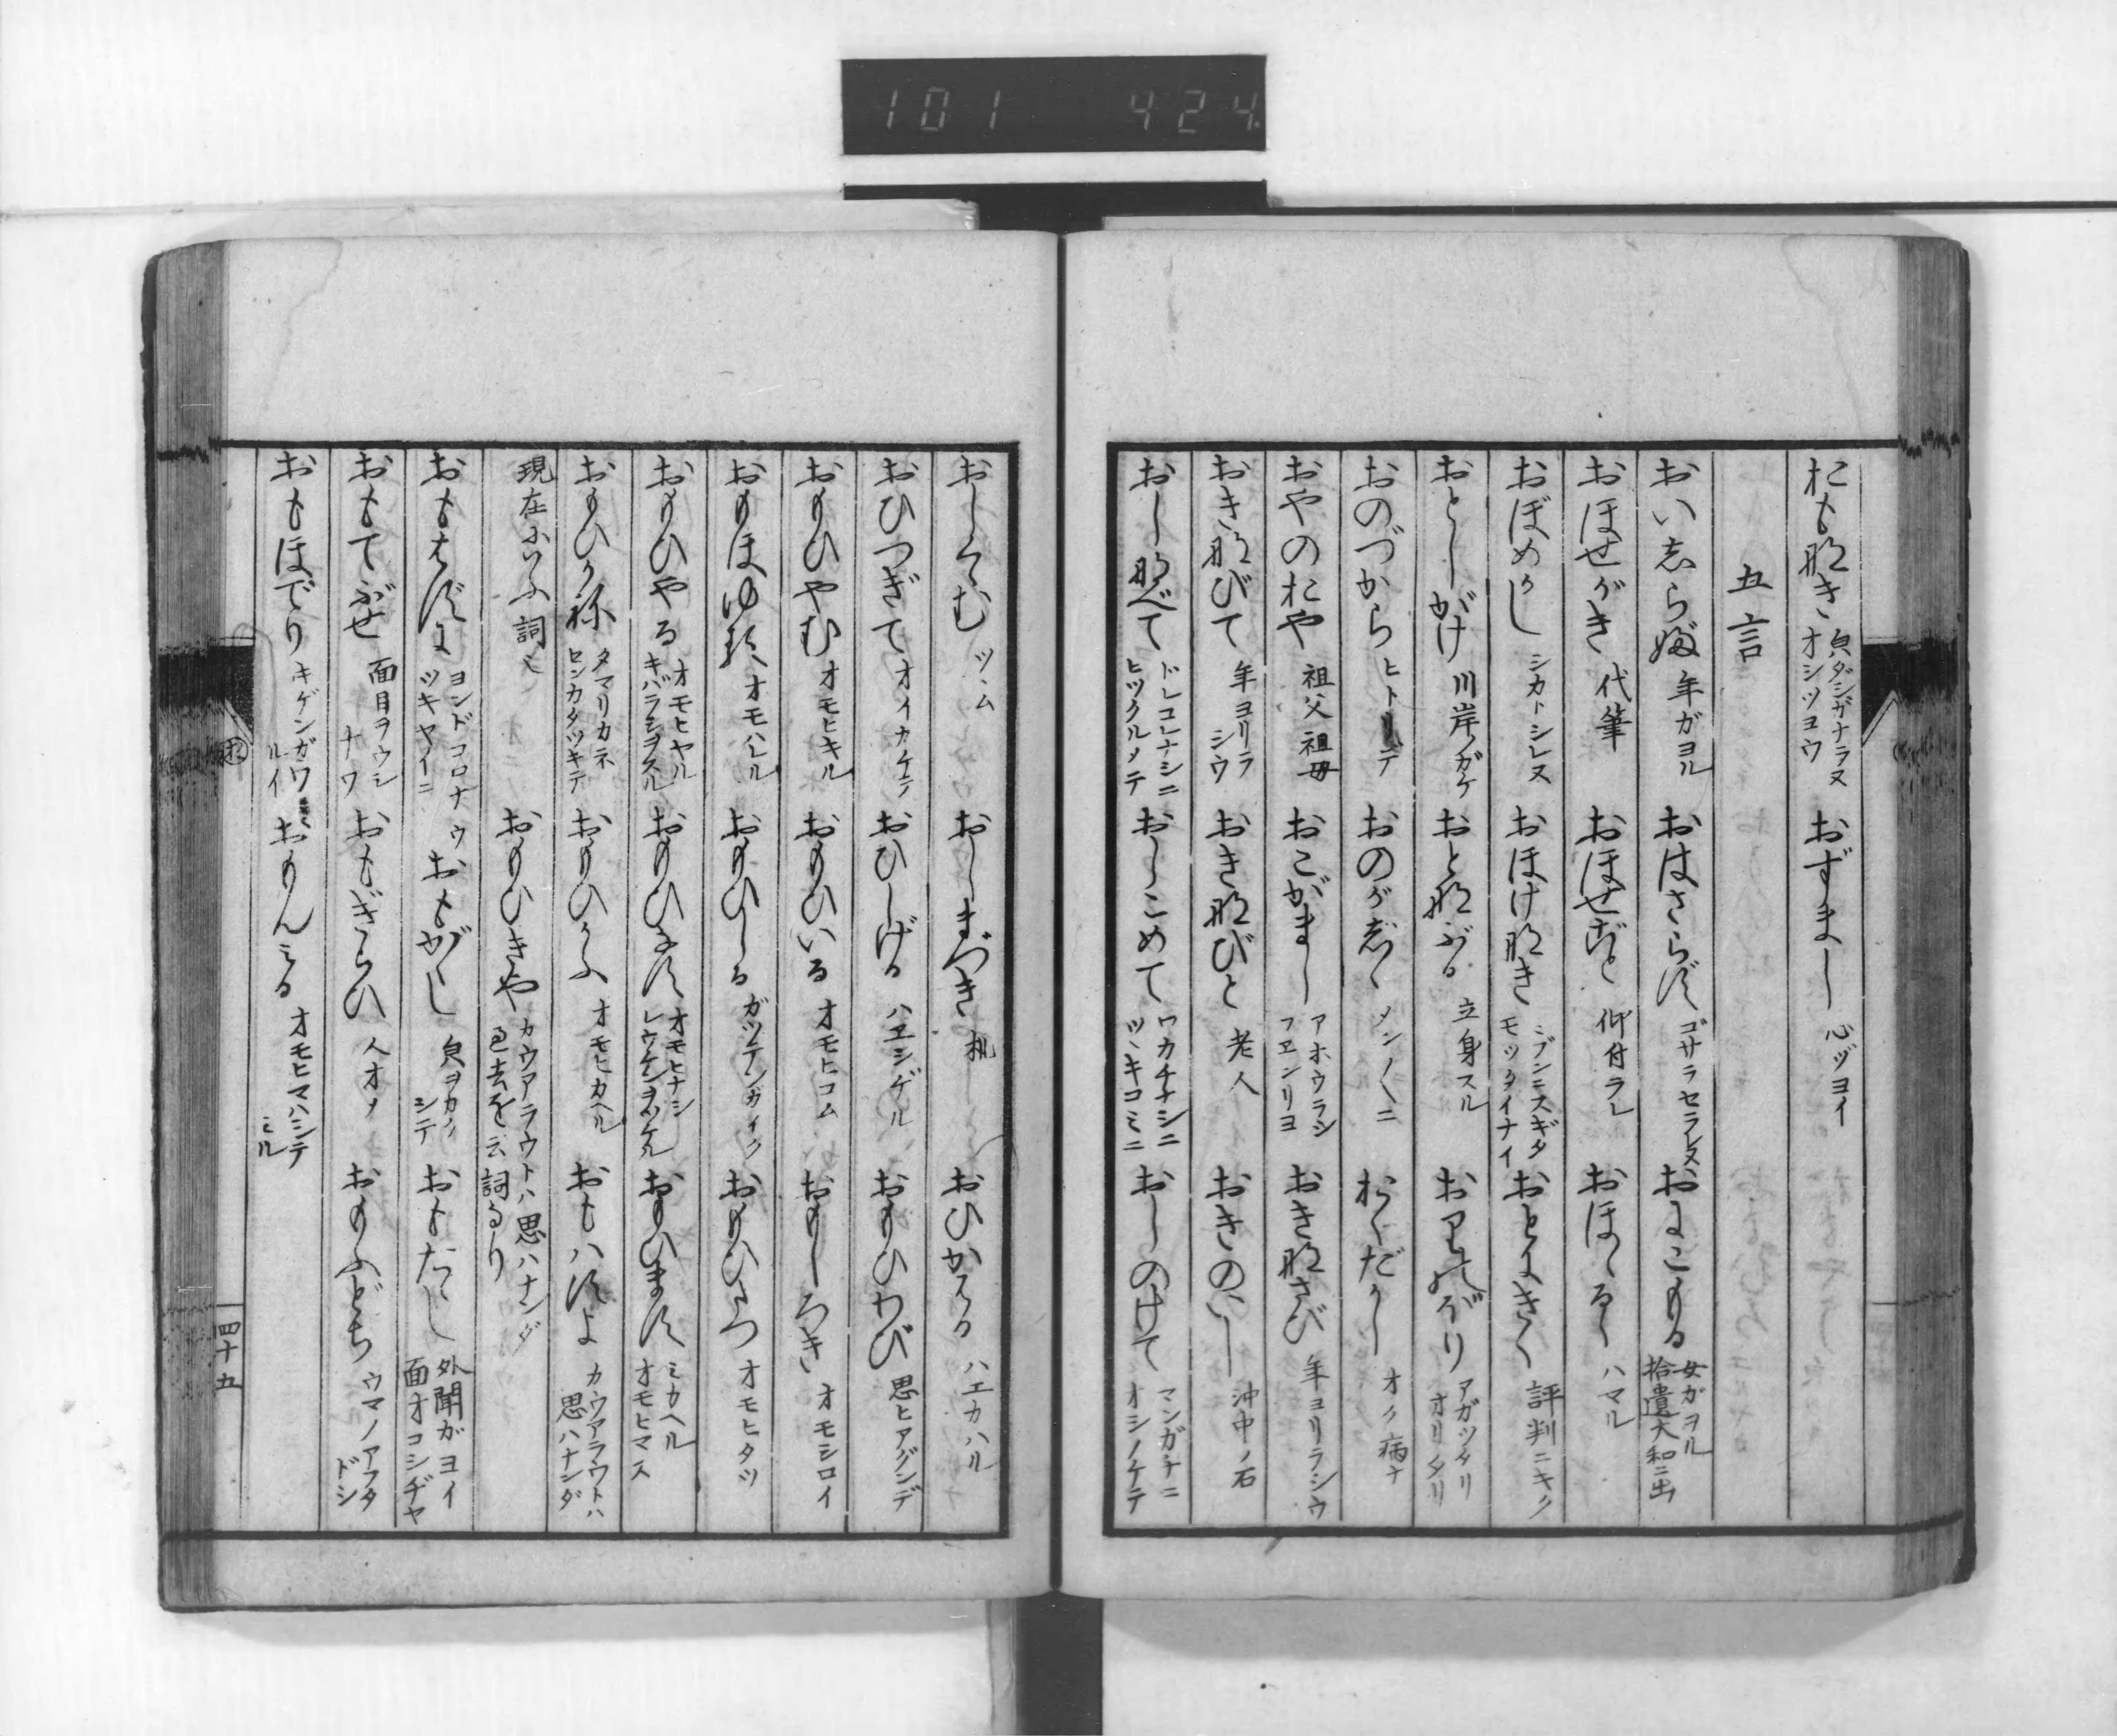 101 424
おも那き 負ダシガナラヌ オシツヨウ おずまし 心ヅヨイ
五言
おい志ら婦 年ガヨル おはさらず ゴサラセラレヌ おにこもる 女ガヨル 拾遺大和ニ出
おほせがき 代筆 おほせごと 仰付ラレ おほゝる ハマル
おぼめかし シカトシレヌ おほけ那き ミブンニスギタ モツタイナイ おとにきく 評判ニキク
おとしがけ 川岸ノガケ おと那ぶる 立身スル おりのぼり アガツタリ オリタリ
おのづから ヒトリデ おのが志ゝ メン〳〵ニ おくだかし オク病ナ
おやのおや 祖父祖母 おこがまし アホウラシ フヱンリヨ おき那さび 年ヨリラシウ
おき那びて 年ヨリラシウ おき那びと 老人 おきのいし 沖中ノ石
おし那べて ドレコレナシニ ヒツクルメテ おしこめて ワカチナシニ ツヽキコミニ おしのけて マンガチニ オシノケテ
おしくゝむ ツヽム おしまづき 机 おひかはる ハエカハル
おひつぎて オイカケテ おひしげる ハヱシゲル おもひわび 思ヒアグンデ
おもひやむ オモヒキル おもひいる オモヒコム おもしろき オモシロイ
おもほゆる オモハルル おもひしる ガツテンガイク おもひたつ オモヒタツ
おもひやる オモヒヤル キバラシヲスル おもひなす オモヒナシ レウケンヲツケル おもひます ミカヘル オモヒマス
おもひかね タマリカネ センカタツキテ おもひかふ オモヒカヘル おもハずよ カウアラウトハ 思ハナンダ
現在にいふ詞也 おもひきや カウアラウトハ思ハナンダ 過去を云詞なり
おもはずに ヨンドコロナウ ツキヤイニ おもがくし 負ヲカクシテ おもだゝし 外聞ガヨイ 面オコシヂヤ
おもてぶせ 面目ヲウシナワ おもぎらひ 人オメ おもふどち ウマノアフタドシ
おもほでり キゲンガワルイ おもんみる オモヒマハシテミル
四十五